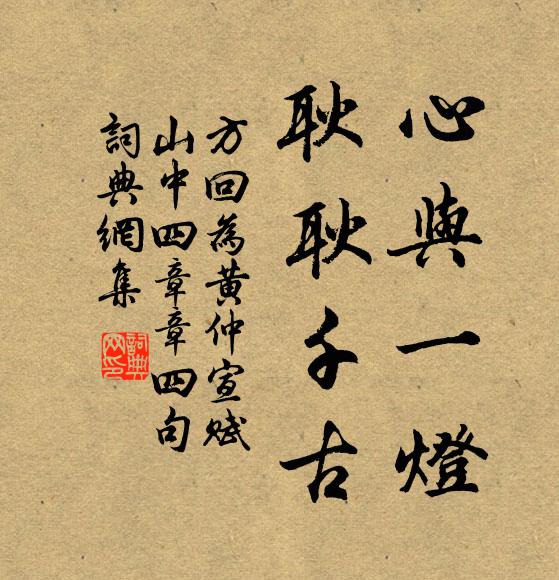 心與一燈
耿耿千古
方回為黃仲宣賦
山中四章章四句
詞典網集
詞典網印